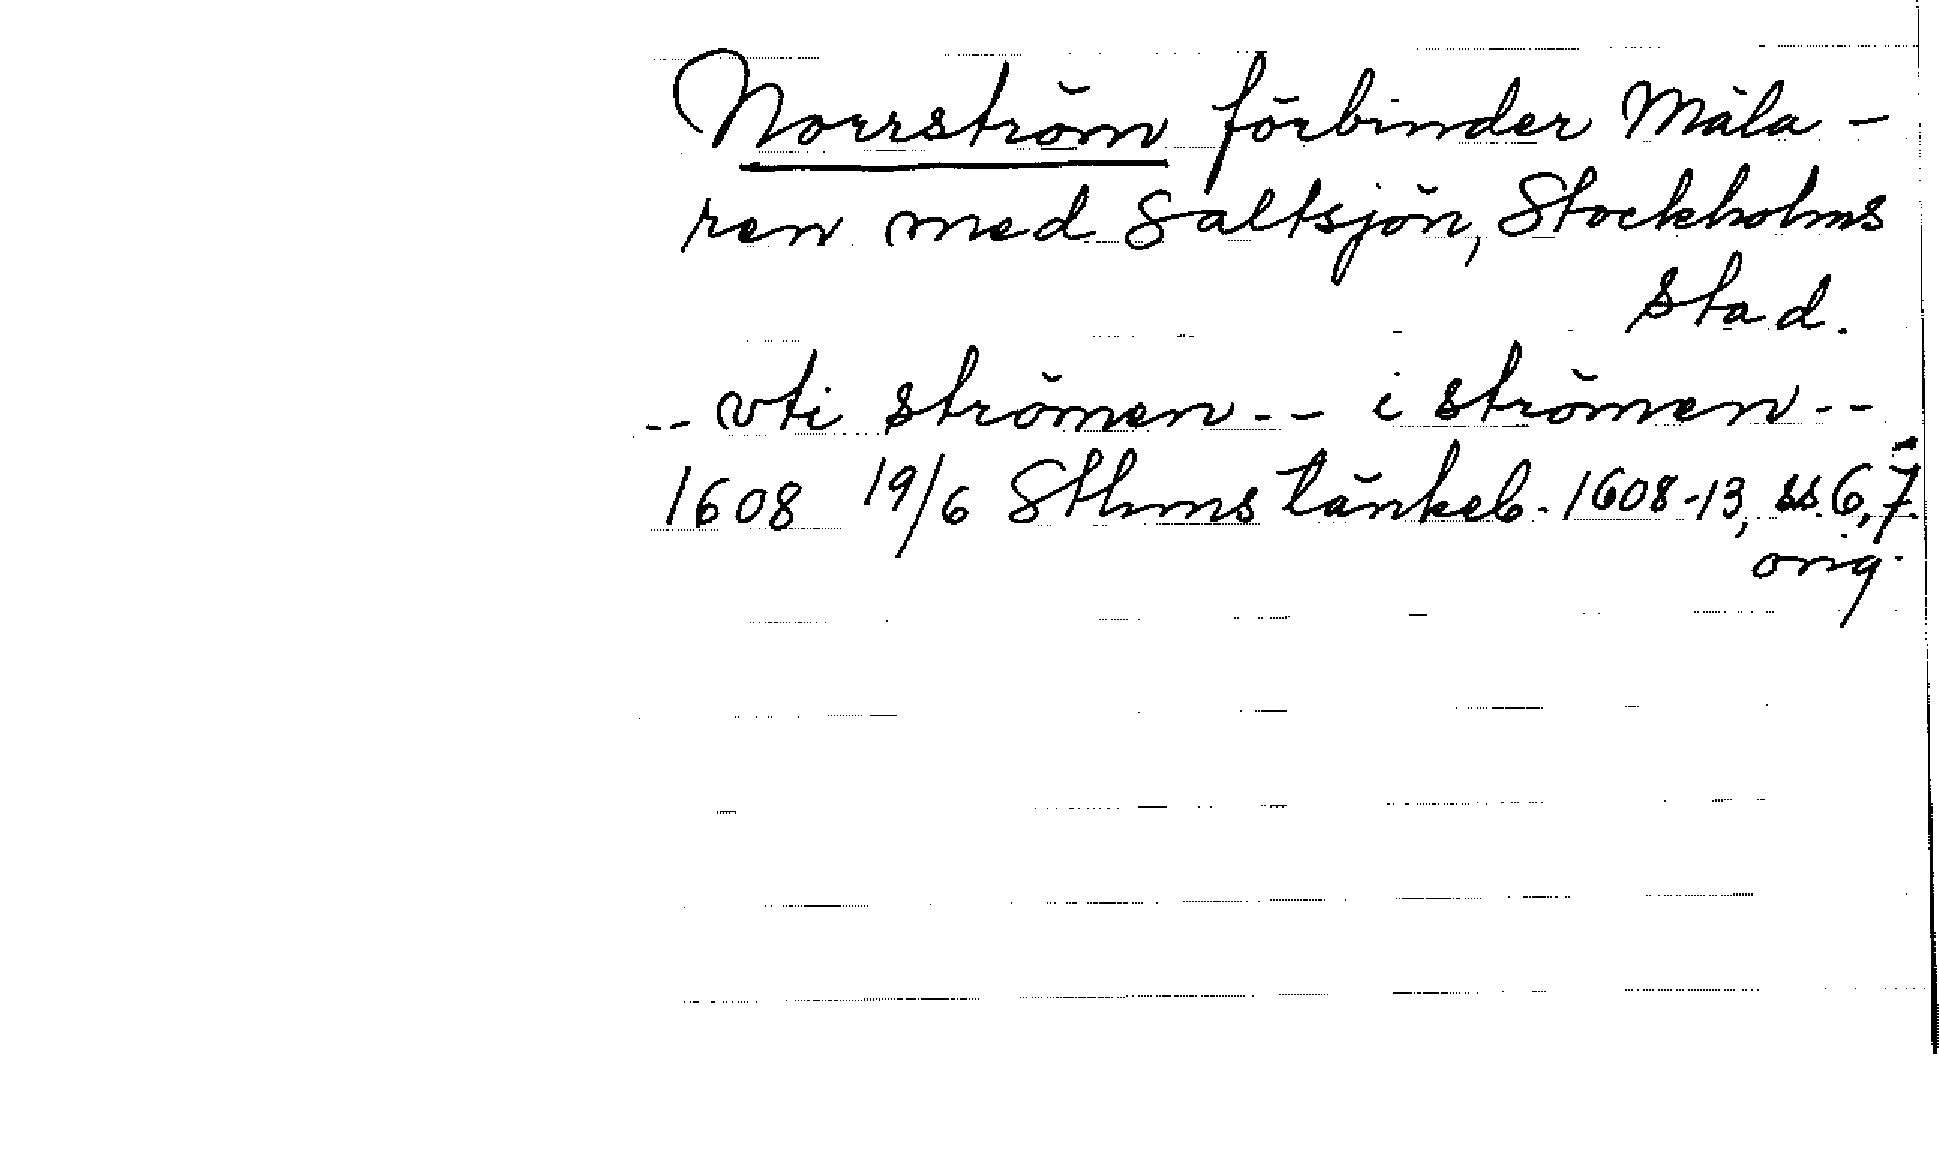 Norrström förbinder Mäla-
ren med Saltsjön, Stockholms
stad.
-- vti strömen -- i strömen --
1608 19/6 Sthms tänkeb. 1608-13, ss. 6, 7.
orig.